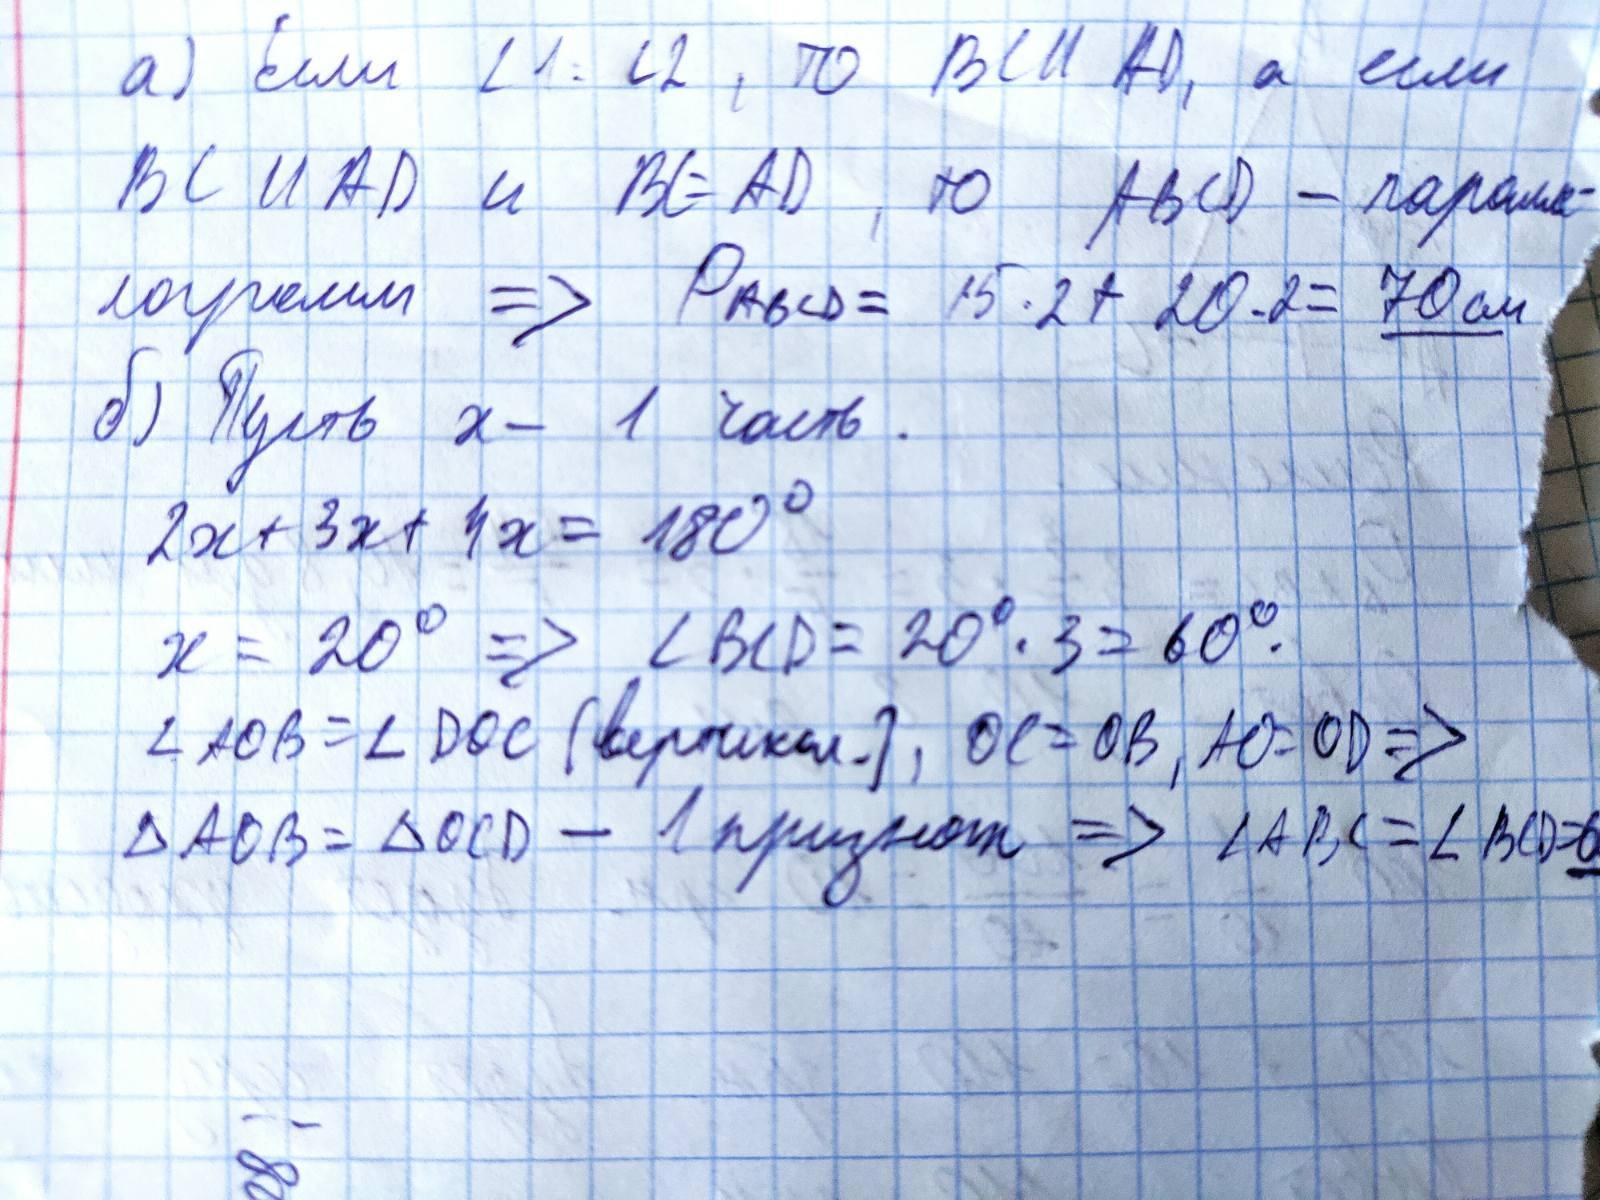 а) Если ∠1 = ∠2, то BC II AD, а если
BC II AD и BC = AD, то ABCD – паралле-
лограмм => PABCD = 15·2 + 20·2 = 70 см
б) Пусть x – 1 часть.
2x + 3x + 4x = 180°
x = 20° => ∠BCD = 20°·3 = 60°.
∠AOB = ∠DOC (вертикал.), OC = OB, AO = OD =>
△AOB = △OCD – 1 признак => ∠ABC = ∠BCD = 6